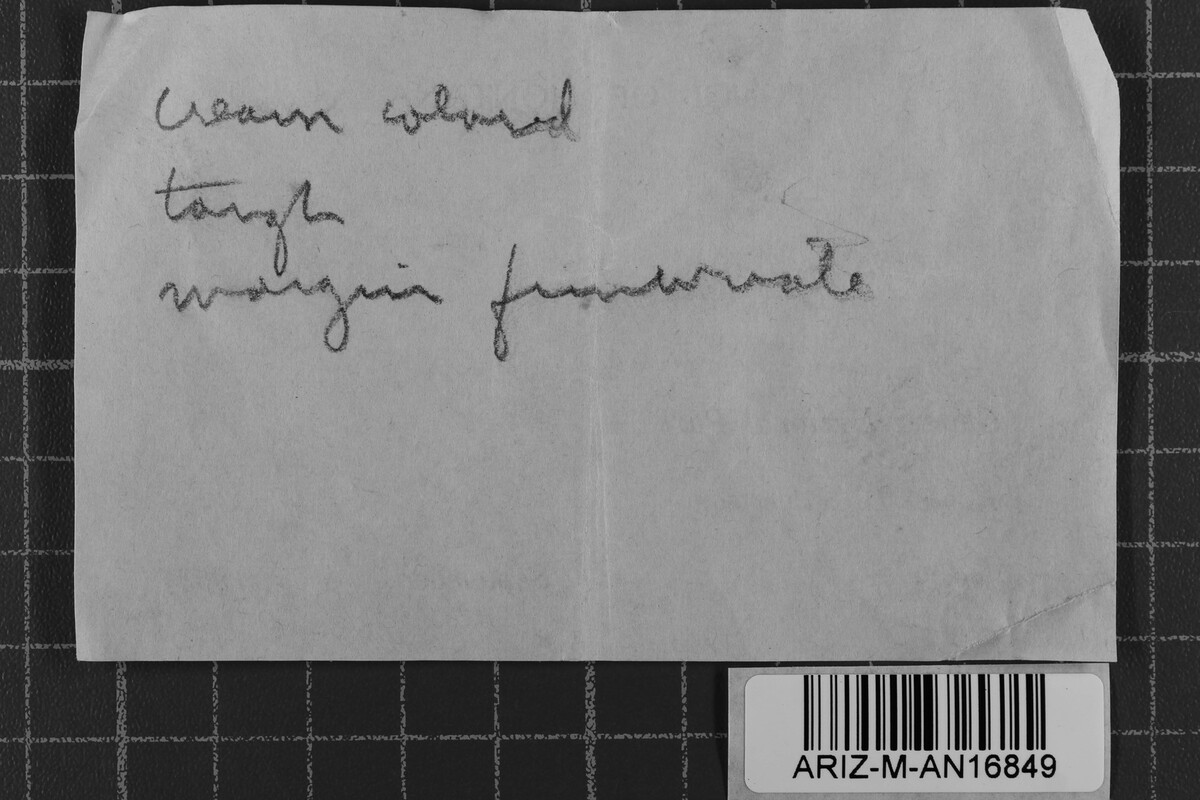 cream colored
tough
margin fimbriate
ARIZ-M-AN16849